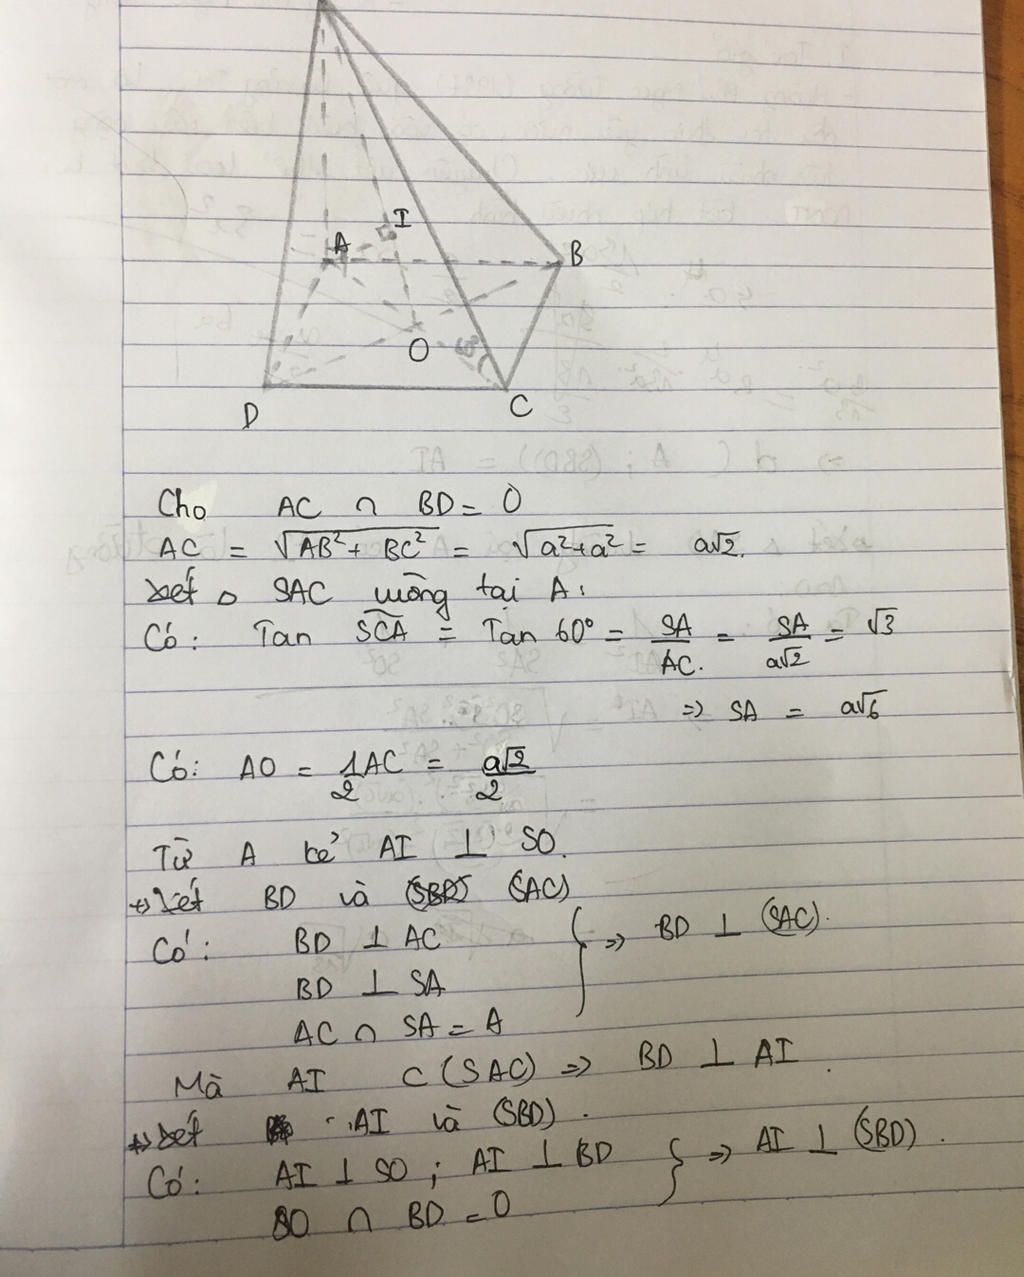 I
A
B
O
60°
D
C
Cho AC ∩ BD = O
AC = √AB² + BC² = √a²+a² = a√2.
Xét △ SAC vuông tại A:
Có: Tan SCA = Tan 60° = SA/AC. = SA/a√2 = √3
=> SA = a√6
Có: AO = 1/2 AC = a√2/2
Từ A kẻ AI ⊥ SO.
+> Xét BD và (SAC)
Có: BD ⊥ AC
BD ⊥ SA
AC ∩ SA = A
} => BD ⊥ (SAC).
Mà AI ⊂ (SAC) => BD ⊥ AI.
+> Xét AI và (SBD).
Có: AI ⊥ SO ; AI ⊥ BD
SO ∩ BD = O
} => AI ⊥ (SBD).